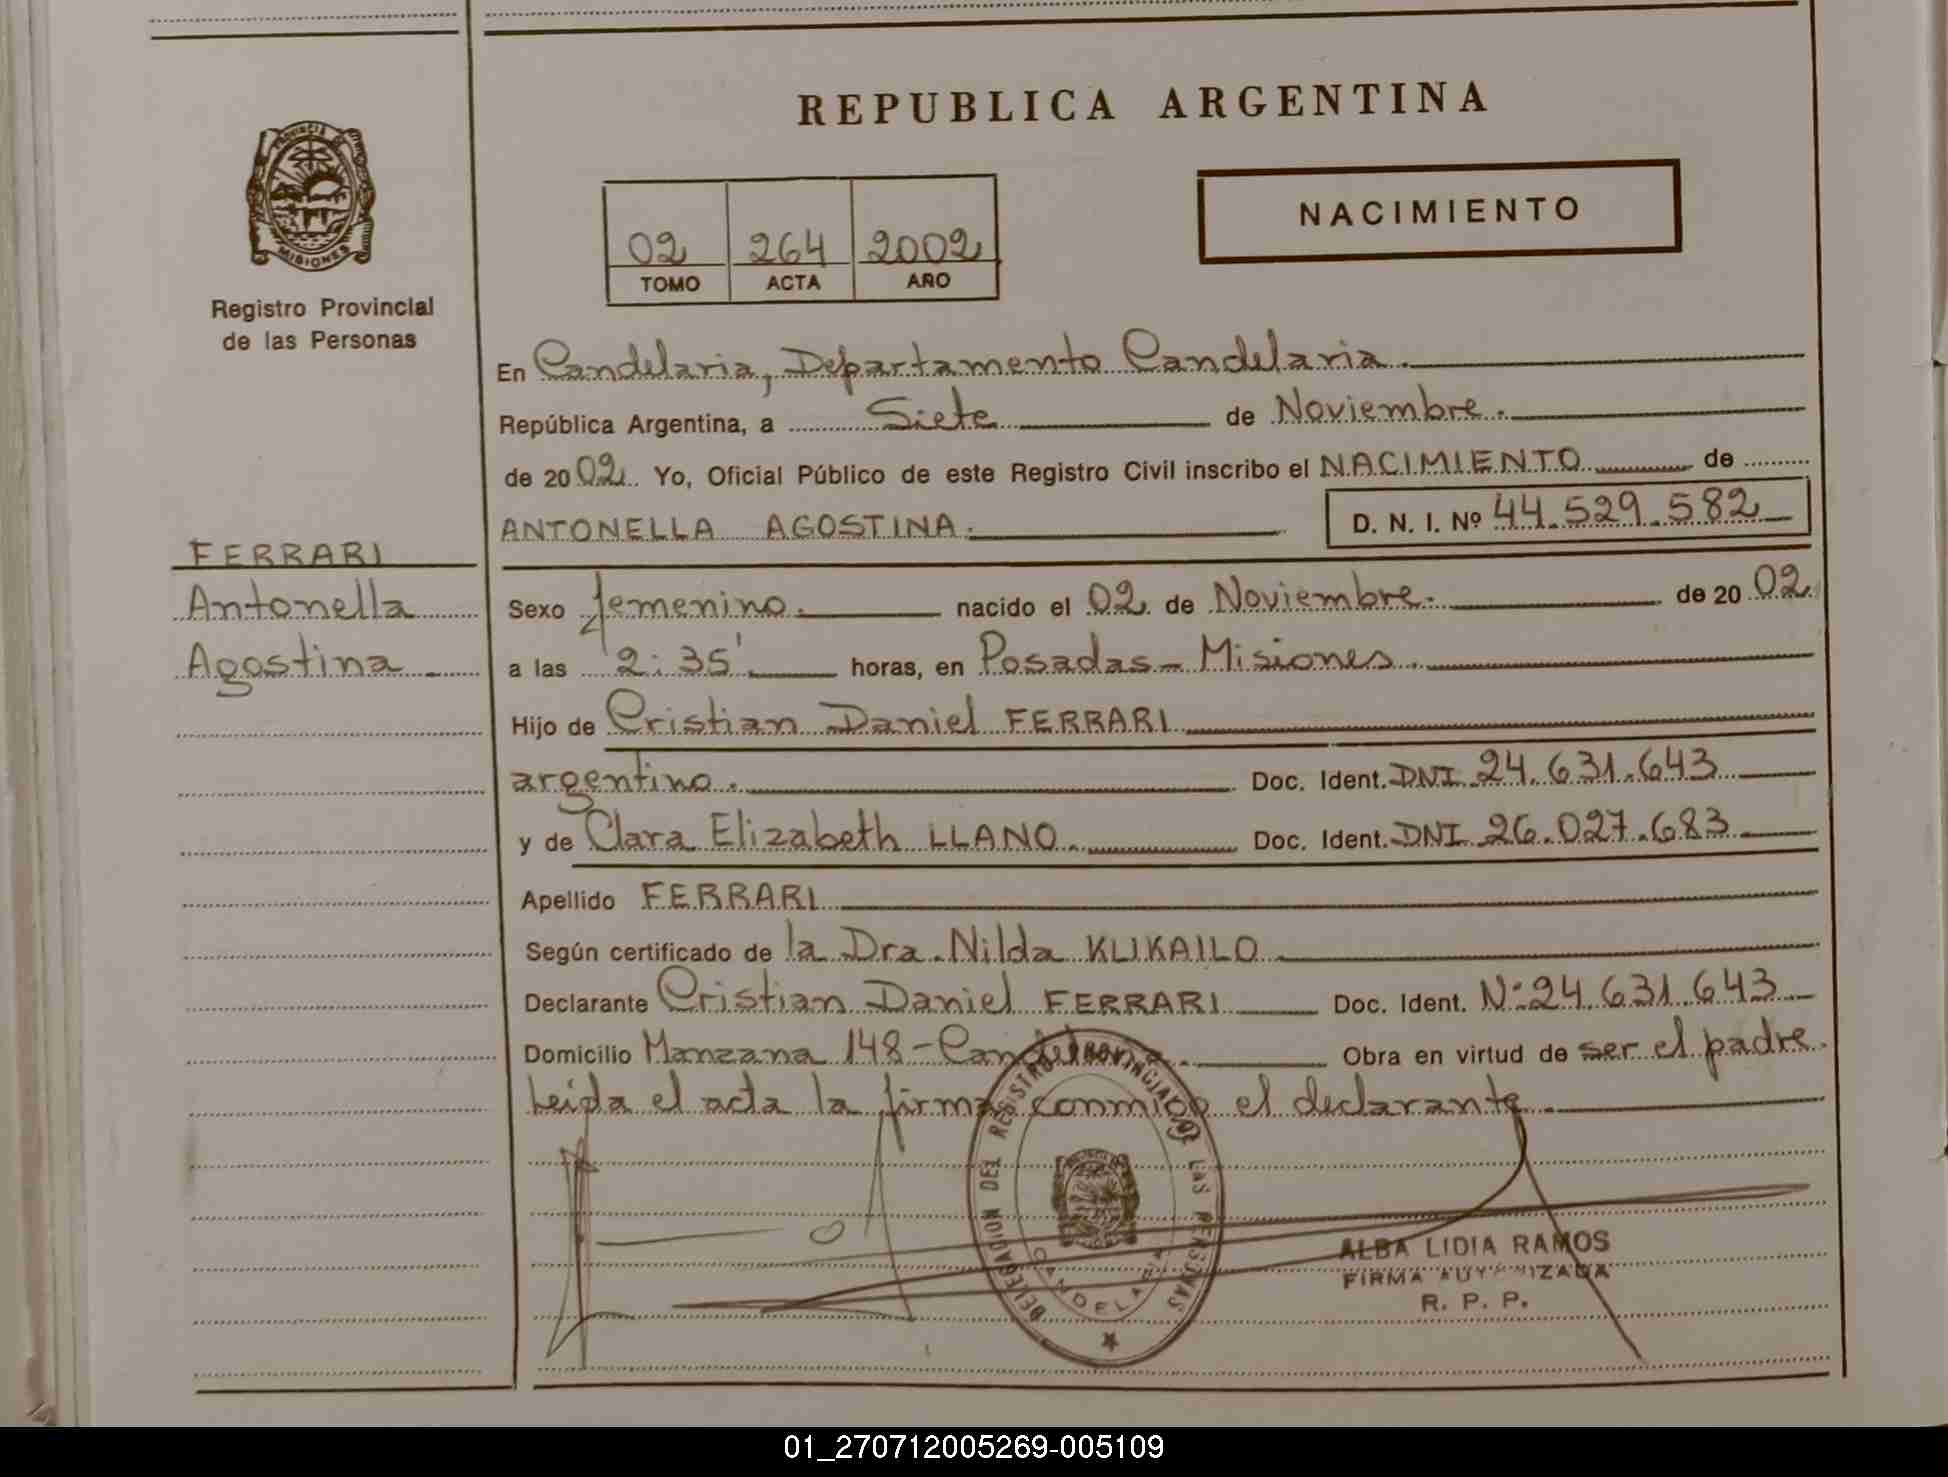 REPUBLICA ARGENTINA
PROVINCIA DE
MISIONES
Registro Provincial
de las Personas
NACIMIENTO
02 264 2002
TOMO ACTA AÑO
En Candelaria, Departamento Candelaria.
República Argentina, a Siete de Noviembre.
de 2002 Yo, Oficial Público de este Registro Civil inscribo el NACIMIENTO de
ANTONELLA AGOSTINA. D. N. I. Nº 44.529.582
FERRARI
Antonella
Agostina
Sexo femenino. nacido el 02 de Noviembre. de 2002
a las 2:35' horas, en Posadas - Misiones.
Hijo de Cristian Daniel FERRARI
argentino. Doc. Ident. DNI 24.631.643
y de Clara Elizabeth LLANO. Doc. Ident. DNI 26.027.683
Apellido FERRARI
Según certificado de la Dra. Nilda KUKAILO
Declarante Cristian Daniel FERRARI Doc. Ident. Nº 24.631.643
Domicilio Manzana 148 - Candelaria. Obra en virtud de ser el padre.
Leida el acta la firma conmigo el declarante.
DELEGACION DEL REGISTRO PROVINCIAL DE LAS PERSONAS
CANDELARIA
ALBA LIDIA RAMOS
FIRMA AUTORIZADA
R. P. P.
01_270712005269-005109